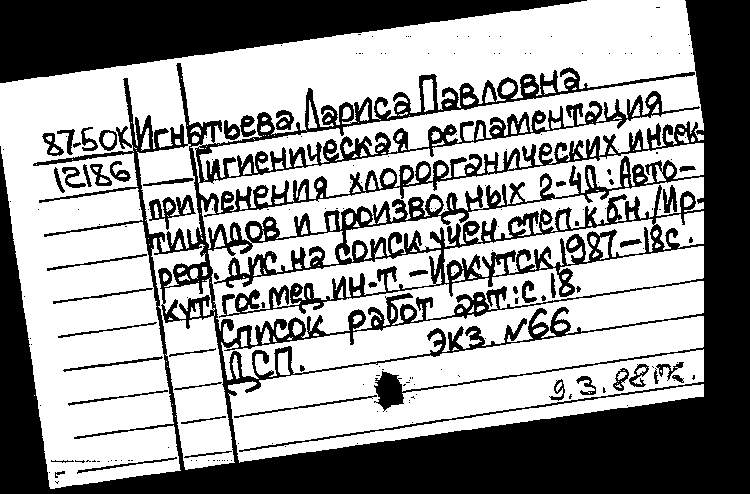 87-50к Игнатьева, Лариса Павловна.
12186 Гигиеническая регламентация
применения хлорорганических инсек-
тицидов и производных 2-4Д: Авто-
реф. дис. на соиск. учен. степ. к.б.н. /Ир-
кут. гос. мед. ин-т. – Иркутск, 1987. – 18с.
Список работ авт.: с. 18.
ДСП. Экз. №66.
9.3.88